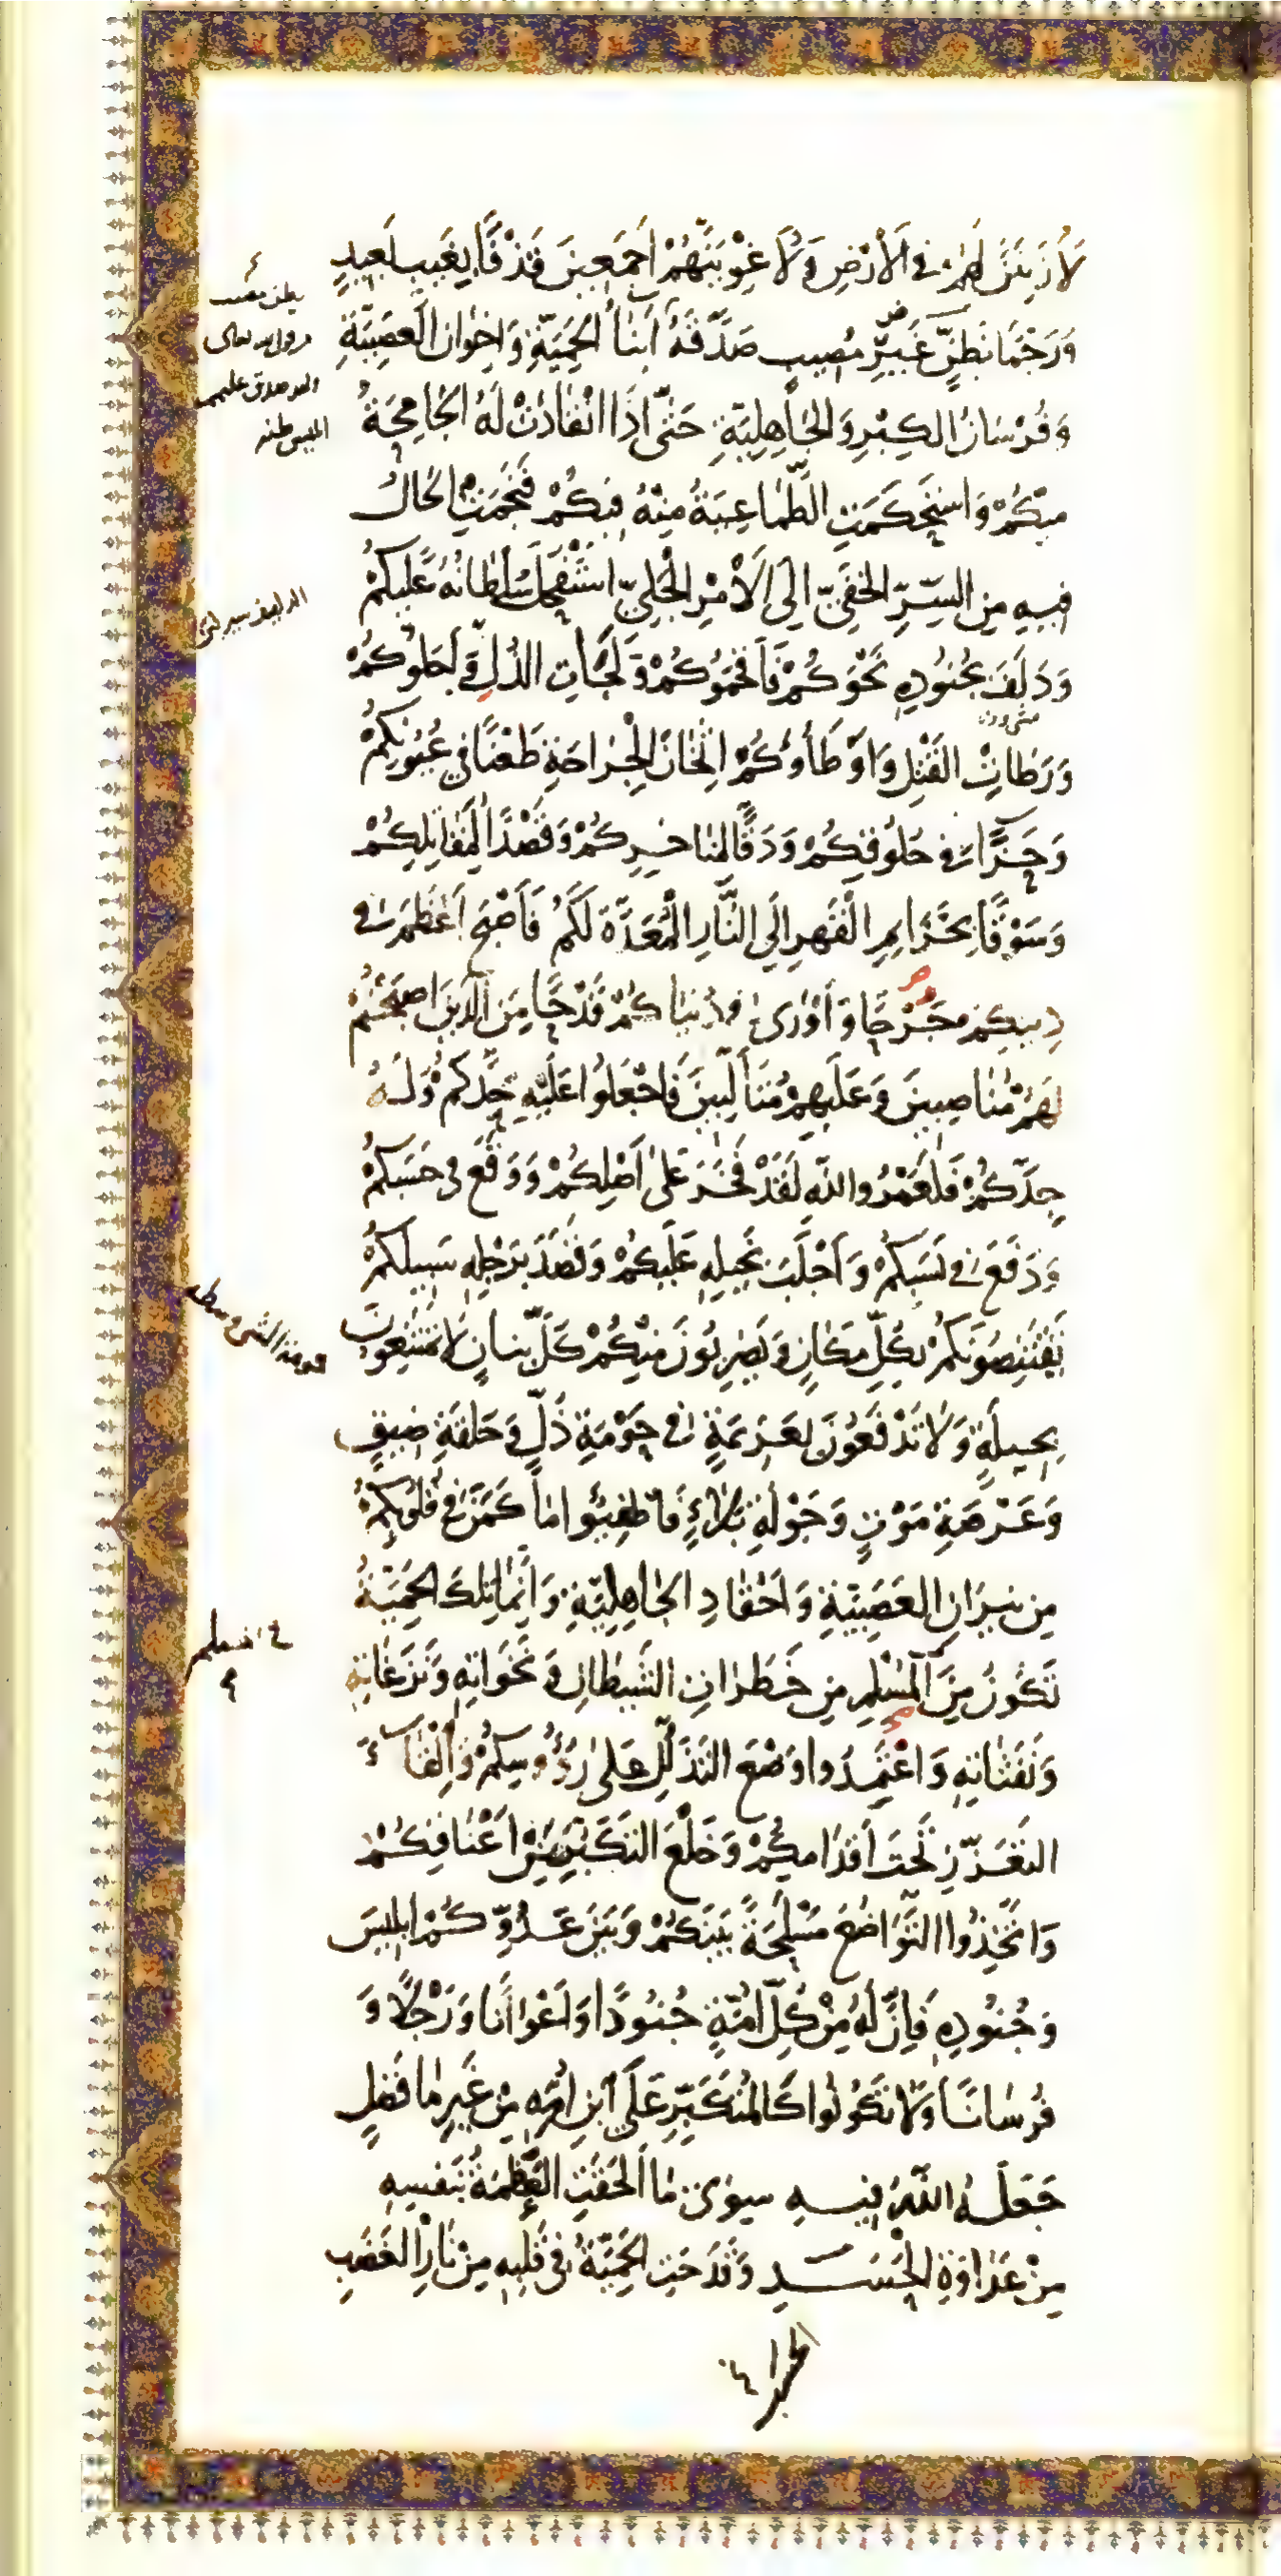 لَأُزَيِّنَنَّ لَهُمْ فِي الْأَرْضِ وَلَأُغْوِيَنَّهُمْ أَجْمَعِينَ قَذْفًا بِغَيْبٍ بَعِيدٍ
وَرَجْمًا بِظَنٍّ غَيْرِ مُصِيبٍ صَدَّقَهُ أَبْنَاءُ الْحَمِيَّةِ وَإِخْوَانُ الْعَصَبِيَّةِ
وَفُرْسَانُ الْكِبْرِ وَالْجَاهِلِيَّةِ حَتَّى إِذَا انْقَادَتْ لَهُ الْجَامِحَةُ
مِنْكُمْ وَاسْتَحْكَمَتِ الطَّمَاعِيَةُ مِنْهُ فِيكُمْ فَنَجَمَتِ الْحَالُ
فِيهِ مِنَ السِّرِّ الْخَفِيِّ إِلَى الْأَمْرِ الْجَلِيِّ اسْتَفْحَلَ سُلْطَانُهُ عَلَيْكُمْ
وَدَلَفَ بِجُنُودِهِ نَحْوَكُمْ فَأَقْحَمُوكُمْ وَلَجَاتِ الذُّلِّ وَأَحَلُّوكُمْ
وَرَطَاتِ الْقَتْلِ وَأَوْطَأُوكُمْ إِثْخَانَ الْجِرَاحَةِ طَعْنًا فِي عُيُونِكُمْ
وَحَزًّا فِي حُلُوقِكُمْ وَدَقًّا لِمَنَاخِرِكُمْ وَقَصْدًا لِمَقَاتِلِكُمْ
وَسَوْقًا بِخَزَائِمِ الْقَهْرِ إِلَى النَّارِ الْمُعَدَّةِ لَكُمْ فَأَصْبَحَ أَعْظَمَ فِي
دِينِكُمْ جَرْحًا وَأَوْرَى فِي دُنْيَاكُمْ قَدْحًا مِنَ الَّذِينَ أَصْبَحْتُمْ
لَهُمْ مُنَاصِبِينَ وَعَلَيْهِمْ مُتَأَلِّبِينَ فَاجْعَلُوا عَلَيْهِ حَدَّكُمْ وَلَهُ
جِدَّكُمْ فَلَعَمْرُ اللَّهِ لَقَدْ فَخَرَ عَلَى أَصْلِكُمْ وَوَقَعَ فِي حَسَبِكُمْ
وَدَفَعَ فِي نَسَبِكُمْ وَأَجْلَبَ بِخَيْلِهِ عَلَيْكُمْ وَقَصَدَ بِرَجْلِهِ سَبِيلَكُمْ
يَقْتَنِصُونَكُمْ بِكُلِّ مَكَانٍ وَيَضْرِبُونَ مِنْكُمْ كُلَّ بَنَانٍ لَا تَمْتَنِعُونَ
بِحِيلَةٍ وَلَا تَدْفَعُونَ بِعَزِيمَةٍ فِي حَوْمَةِ ذُلٍّ وَحَلْقَةِ ضِيقٍ
وَعَرْصَةِ مَوْتٍ وَجَوْلَةِ بَلَاءٍ فَأَطْفِئُوا مَا كَمَنَ فِي قُلُوبِكُمْ
مِنْ نِيرَانِ الْعَصَبِيَّةِ وَأَحْقَادِ الْجَاهِلِيَّةِ وَإِنَّمَا تِلْكَ الْحَمِيَّةُ
تَكُونُ مِنَ الْمُسْلِمِ مِنْ خَطَرَاتِ الشَّيْطَانِ وَنَخَوَاتِهِ وَنَزَغَاتِهِ
وَنَفَثَاتِهِ وَاعْتَمِدُوا وَضْعَ التَّذَلُّلِ عَلَى رُءُوسِكُمْ وَإِلْقَاءَ
التَّعَزُّزِ تَحْتَ أَقْدَامِكُمْ وَخَلْعَ التَّكَبُّرِ مِنْ أَعْنَاقِكُمْ
وَاتَّخِذُوا التَّوَاضُعَ مَسْلَحَةً بَيْنَكُمْ وَبَيْنَ عَدُوِّكُمْ إِبْلِيسَ
وَجُنُودِهِ فَإِنَّ لَهُ مِنْ كُلِّ أُمَّةٍ جُنُودًا وَأَعْوَانًا وَرَجْلًا وَ
فُرْسَانًا وَلَا تَكُونُوا كَالْمُتَكَبِّرِ عَلَى ابْنِ أُمِّهِ مِنْ غَيْرِ مَا فَضْلٍ
جَعَلَهُ اللَّهُ فِيهِ سِوَى مَا أَلْحَقَتِ الْعَظَمَةُ بِنَفْسِهِ
مِنْ عَدَاوَةِ الْحَسَدِ وَقَدَحَتِ الْحَمِيَّةُ فِي قَلْبِهِ مِنْ نَارِ الْغَضَبِ